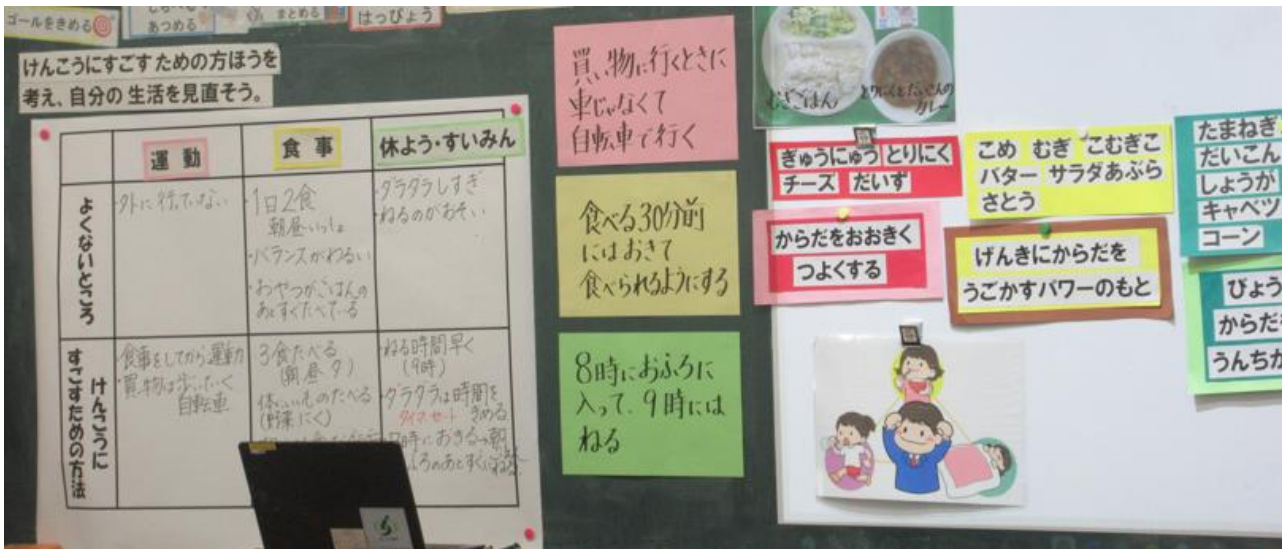 ゴールをきめる
あつめる
まとめる
はっぴょう
けんこうにすごすための方ほうを
考え、自分の生活を見直そう。
運動
食事
休よう・すいみん
よくないところ
・外に行っていない
・1日2食
朝昼いっしょ
・バランスがわるい
・おやつがごはんの
あとすぐたべている
・ダラダラしすぎ
・ねるのがおそい
けんこうに
すごすための方法
・食事をしてから運動
・買物は歩いていく
自転車
・3食たべる
(朝昼夕)
体にいいものたべる
(野菜にく)
・ねる時間早く
(9時)
・ダラダラは時間を
きめる
買い物に行くときに
車じゃなくて
自転車で行く
食べる30分前
にはおきて
食べられるようにする
8時におふろに
入って、9時には
ねる
むぎごはん
とりにくとだいこんの
カレー
ぎゅうにゅう とりにく
チーズ だいず
からだをおおきく
つよくする
こめ むぎ こむぎこ
バター サラダあぶら
さとう
げんきにからだを
うごかすパワーのもと
たまねぎ
だいこん
しょうが
キャベツ
コーン
びょう
からだ
うんちが